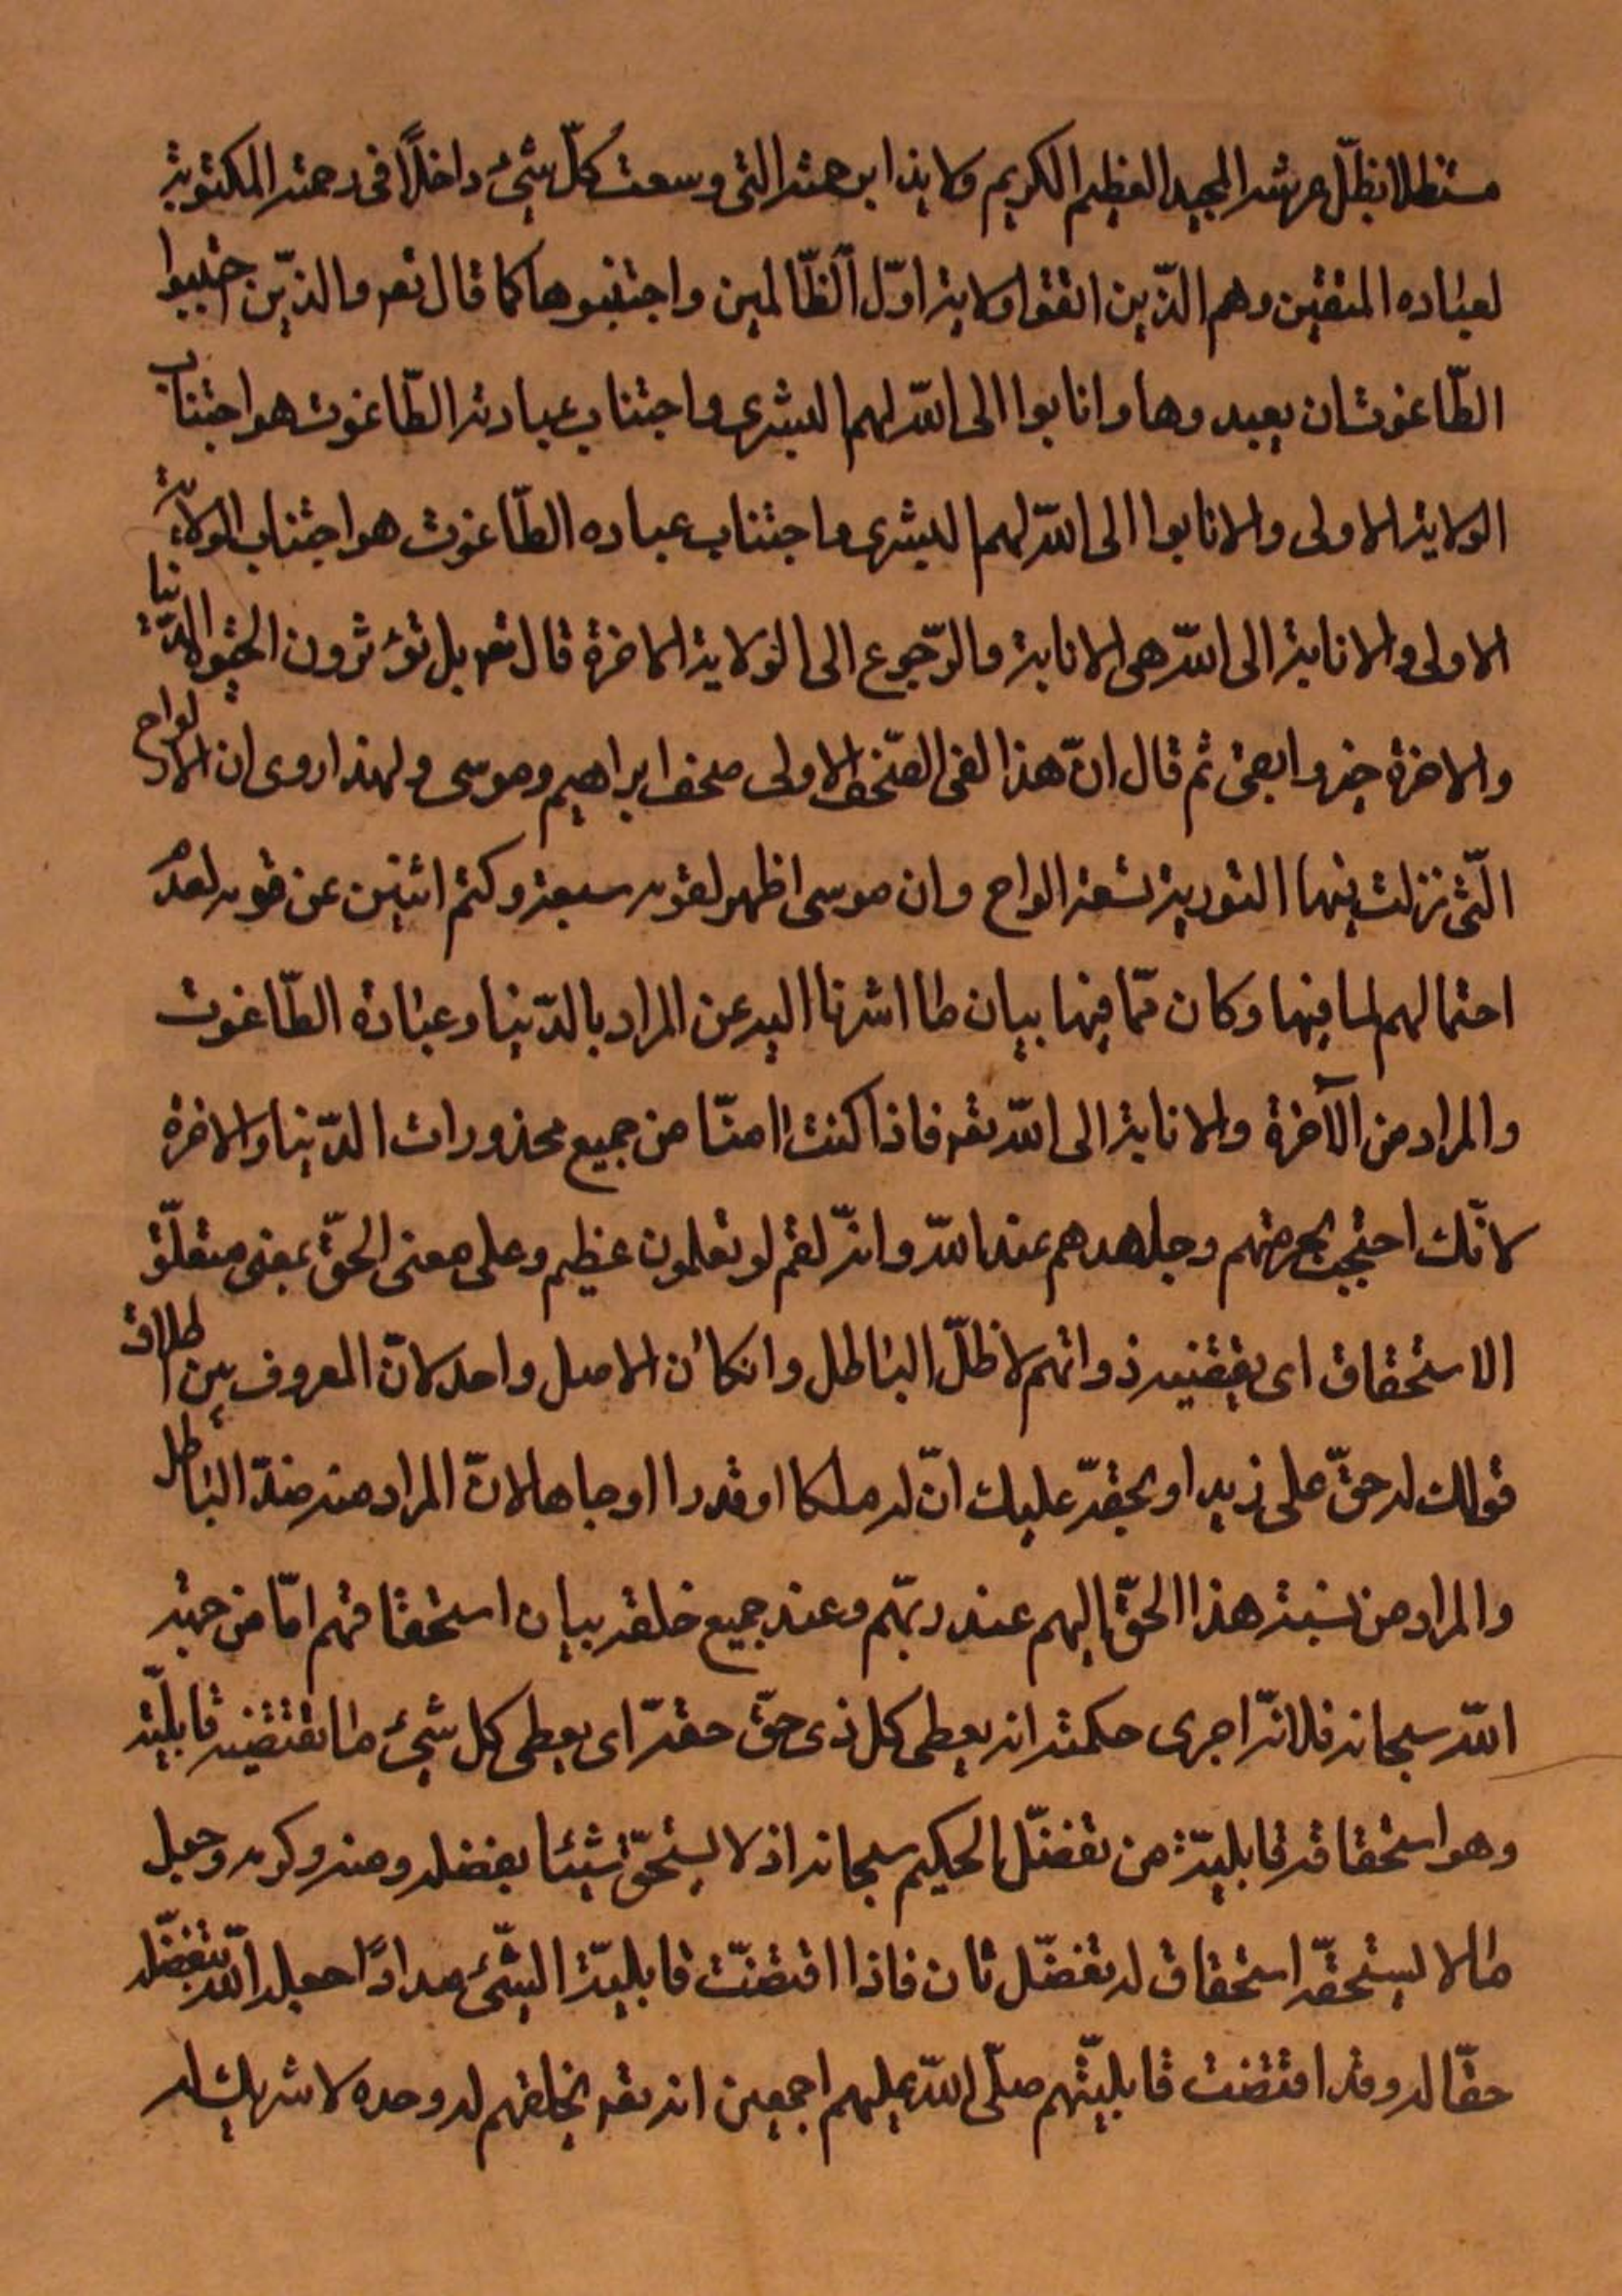 مستظلا بظلّ عرشه المجيد العظيم الكريم ولايذا برحمته التى وسعت كلّ شئ داخلًا فى رحمته المكتوبة
لعباده المتقين وهم الذّين اتقوا ولاية اوّل الظّالمين واجتنبوها كما قال تعـ والذّين اجتنبوا
الطّاغوت ان يعبدوها وانابوا الى اللّه لهم البشرى واجتناب عبادة الطّاغوت هو اجتناب
الولاية الاولى والانابوا الى اللّه لهم البشرى واجتناب عباده الطّاغوت هو اجتناب الولاية
الاولى والانابة الى اللّه هى الانابة والرّجوع الى الولاية الاخرة قال تعـ بل تؤثرون الحيوة الدّنيا
والاخرة خير وابقى ثم قال انّ هذا لفى الصّحف الاولى صحف ابراهيم وموسى ولهذا روى ان الالواح
الّتى نزلت فيها التورية تسعة الواح وان موسى اظهر لقومه سبعة وكتم اثنين عن قومه لعدم
احتمالهم لما فيها وكان ممّا فيها بيان ما اشرنا اليه عن المراد بالدّنيا وعبادة الطّاغوت
والمراد من الآخرة والانابة الى اللّه تعـ فاذا كنت امنّا من جميع محذورات الدّنيا والاخرة
لانّك احتجبت بحرمتهم وجاههم عند اللّه وانّه لقسم لو تعلمون عظيم وعلى معنى الحقّ بمعنى متعلّق
الاستحقاق اى يقتضيه ذواتهم لا ظلّ الباطل وانكان الاصل واحد لانّ المعروف من اطلاق
قولك له حقّ على زيد او بحقّه عليك انّ له ملكا او قدرا او جاها لانّ المراد منه ضدّ الباطل
والمراد من نسبة هذا الحقّ اليهم عند ربّهم وعند جميع خلقه بيان استحقاقهم امّا من جهة
اللّه سبحانه فلانّه اجرى حكمته انه يعطى كل ذى حقّ حقّه اى يعطى كل شئ ما تقتضيه قابليّته
وهو استحقاقه قابليّة من تفضّل الحكيم سبحانه اذ لا يستحقّ شيئا بفضله ومنه وكرمه وجعل
مالا يستحقّه استحقاق له تفضّل ثان فاذا اقتضت قابليّة الشّئ مدادًا جعله اللّه بتفضّله
حقّا له وقد اقتضت قابليّتهم صلّى اللّه عليهم اجمعين انه تعـ يخلقهم له وحده لا شريك له